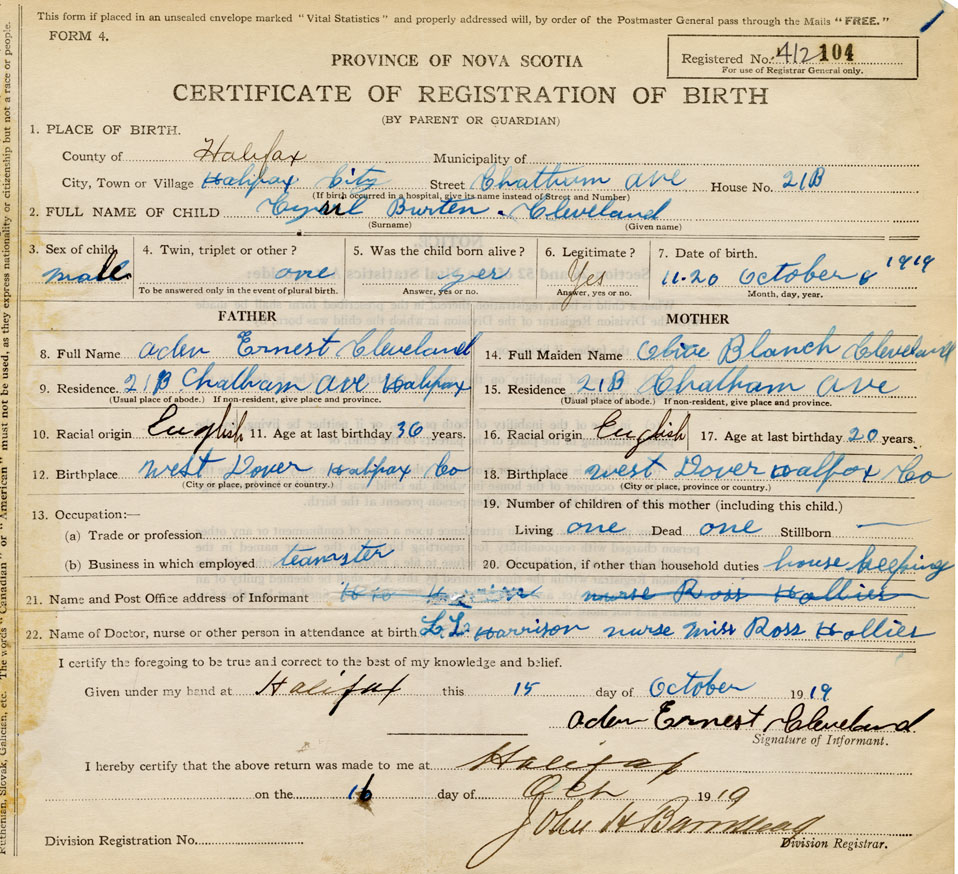 This form if placed in an unsealed envelope marked "Vital Statistics" and properly addressed will, by order of the Postmaster General pass through the Mails "FREE."
FORM 4.
Registered No. 412 104
For use of Registrar General only.
PROVINCE OF NOVA SCOTIA
CERTIFICATE OF REGISTRATION OF BIRTH
(BY PARENT OR GUARDIAN)
1. PLACE OF BIRTH.
County of Halifax Municipality of
City, Town or Village Halifax City Street Chathum Ave House No. 21B
(If birth occurred in a hospital, give its name instead of Street and Number)
2. FULL NAME OF CHILD Cyril Burten Cleveland
(Surname) (Given name)
3. Sex of child 4. Twin, triplet or other? 5. Was the child born alive? 6. Legitimate? 7. Date of birth.
male one yes Yes 11-20 October 6 1919
To be answered only in the event of plural birth. Answer, yes or no. Answer, yes or no. Month, day, year.
FATHER MOTHER
8. Full Name Aden Ernest Cleveland 14. Full Maiden Name Olive Blanch Cleveland
9. Residence. 21B Chatham Ave Halifax 15. Residence 21B Chatham Ave
(Usual place of abode.) If non-resident, give place and province. (Usual place of abode.) If non-resident, give place and province.
10. Racial origin English 11. Age at last birthday 36 years. 16. Racial origin English 17. Age at last birthday 20 years.
12. Birthplace West Dover Halifax Co 18. Birthplace West Dover Halfox Co
(City or place, province or country.) (City or place, province or country.)
13. Occupation:— 19. Number of children of this mother (including this child.)
(a) Trade or profession Living one Dead one Stillborn —
(b) Business in which employed teamster 20. Occupation, if other than household duties house keeping
21. Name and Post Office address of Informant nurse Ross Hollies
22. Name of Doctor, nurse or other person in attendance at birth Harrison nurse Miss Ross Hollies
I certify the foregoing to be true and correct to the best of my knowledge and belief.
Given under my hand at Halifax this 15 day of October 1919
Aden Ernest Cleveland
Signature of Informant.
I hereby certify that the above return was made to me at Halifax
on the 16 day of Oct 1919
John H
Division Registration No. Division Registrar.
Ruthenian, Slovak, Galician, etc. The words "Canadian" or "American" must not be used, as they express nationality or citizenship but not a race or people.